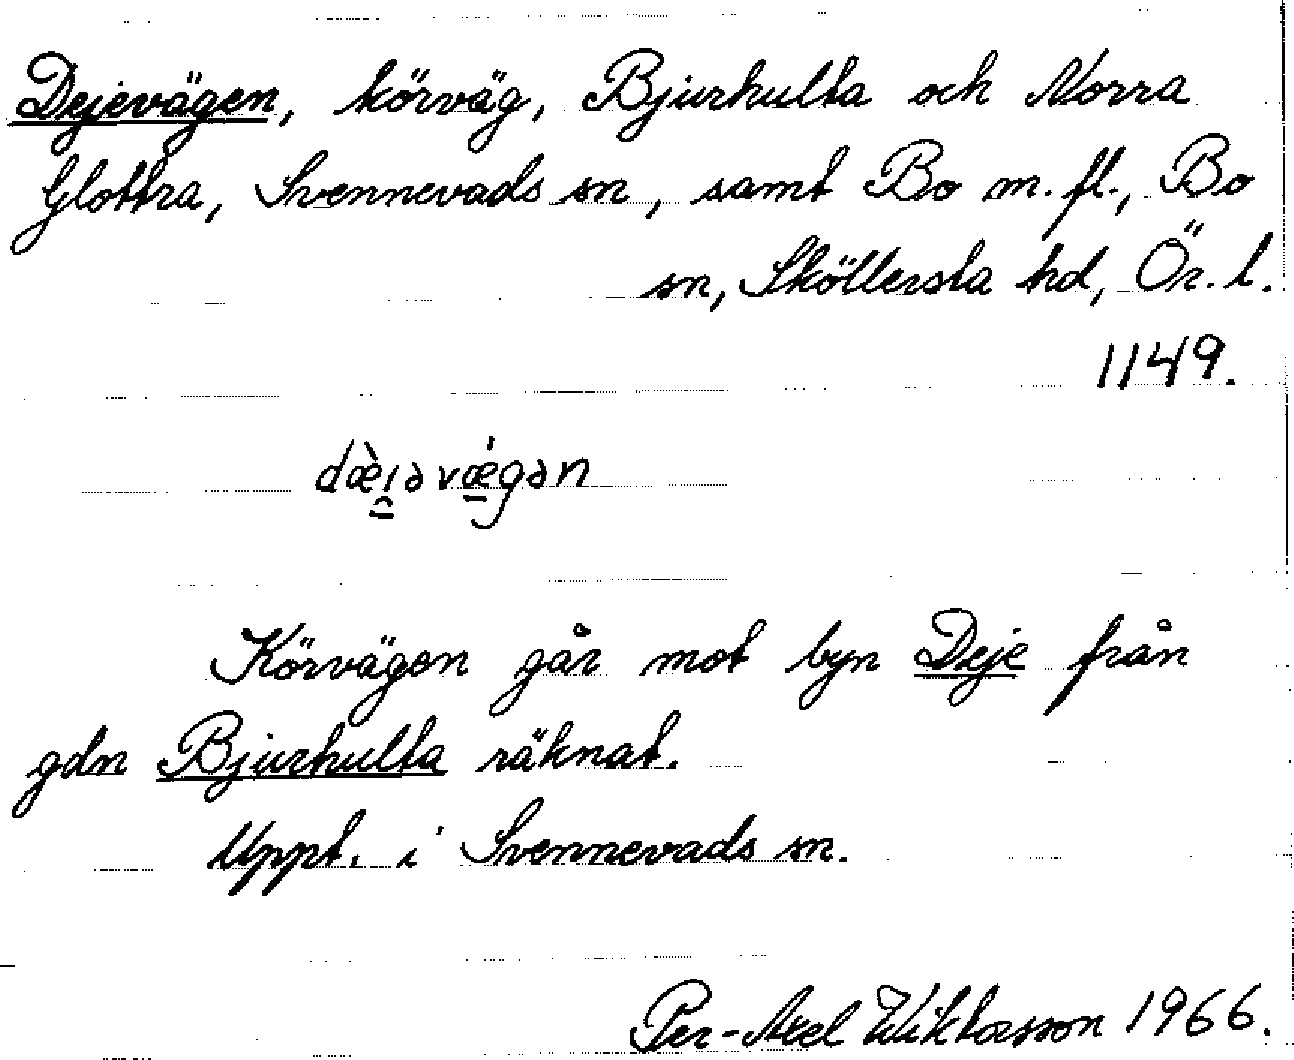 Dejevägen, körväg, Bjurhulta och Norra
Glottra, Svennevads sn, samt Bo m. fl., Bo
sn, Sköllersta hd, Ör. l.
1149.
dæ̀i̯əvǽgən
Körvägen går mot byn Deje från
gdn Bjurhulta räknat.
Uppt. i Svennevads sn.
Per-Axel Wiktorsson 1966.